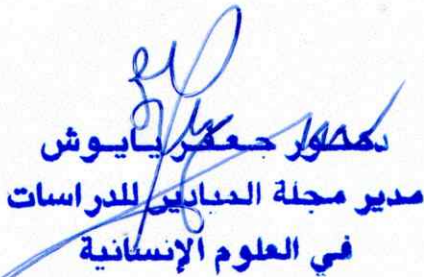 دكتور جعفر يايوش
مدير مجلة الميادين للدراسات
في العلوم الإنسانية